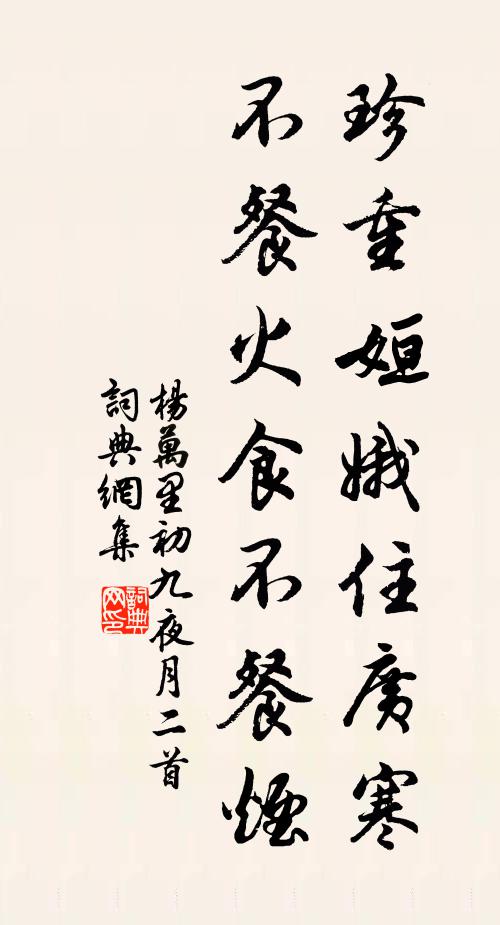 珍重姮娥住廣寒
不餐火食不餐煙
楊萬里初九夜月二首
詞典網集
詞典网印